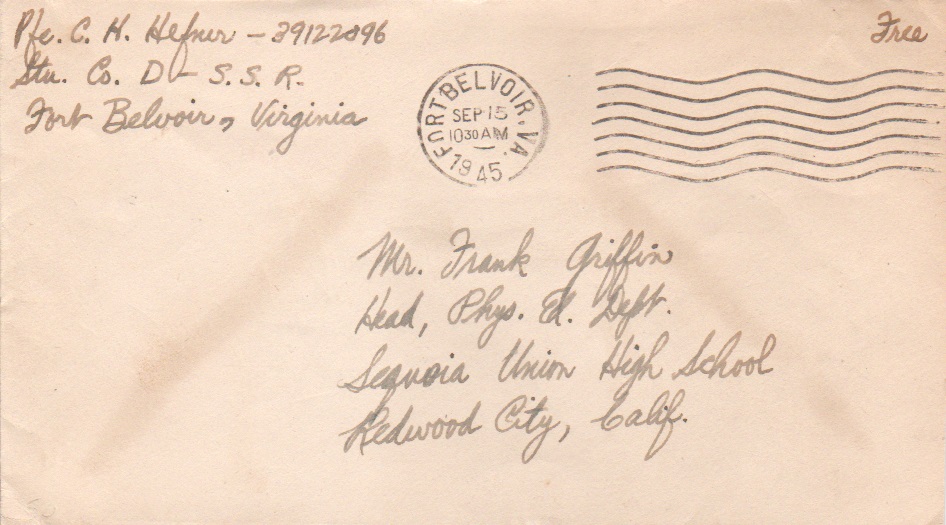 Pfc. C. H. Hefner - 39122896
Stu. Co. D - S. S. R.
Fort Belvoir, Virginia
Free
FORT BELVOIR, VA.
SEP 15
10 30 AM
1945
Mr. Frank Griffin
Head, Phys. Ed. Dept.
Sequoia Union High School
Redwood City, Calif.